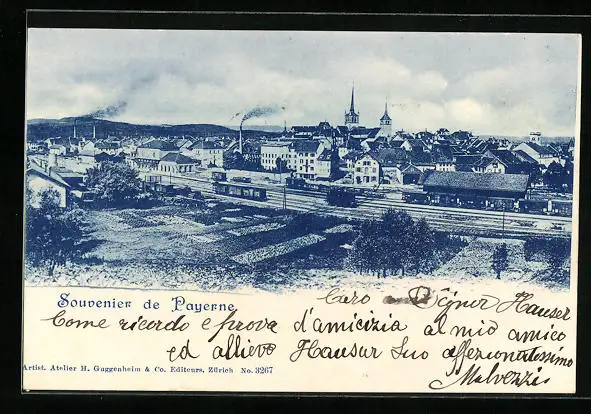 Souvenir de Payerne.
Caro Signor Hauser
Come ricordo e prova d'amicizia al mio amico
ed allievo Hauser Suo affezionatissimo
Malvezzi
Artist. Atelier H. Guggenheim & Co. Editeurs, Zürich No. 3267